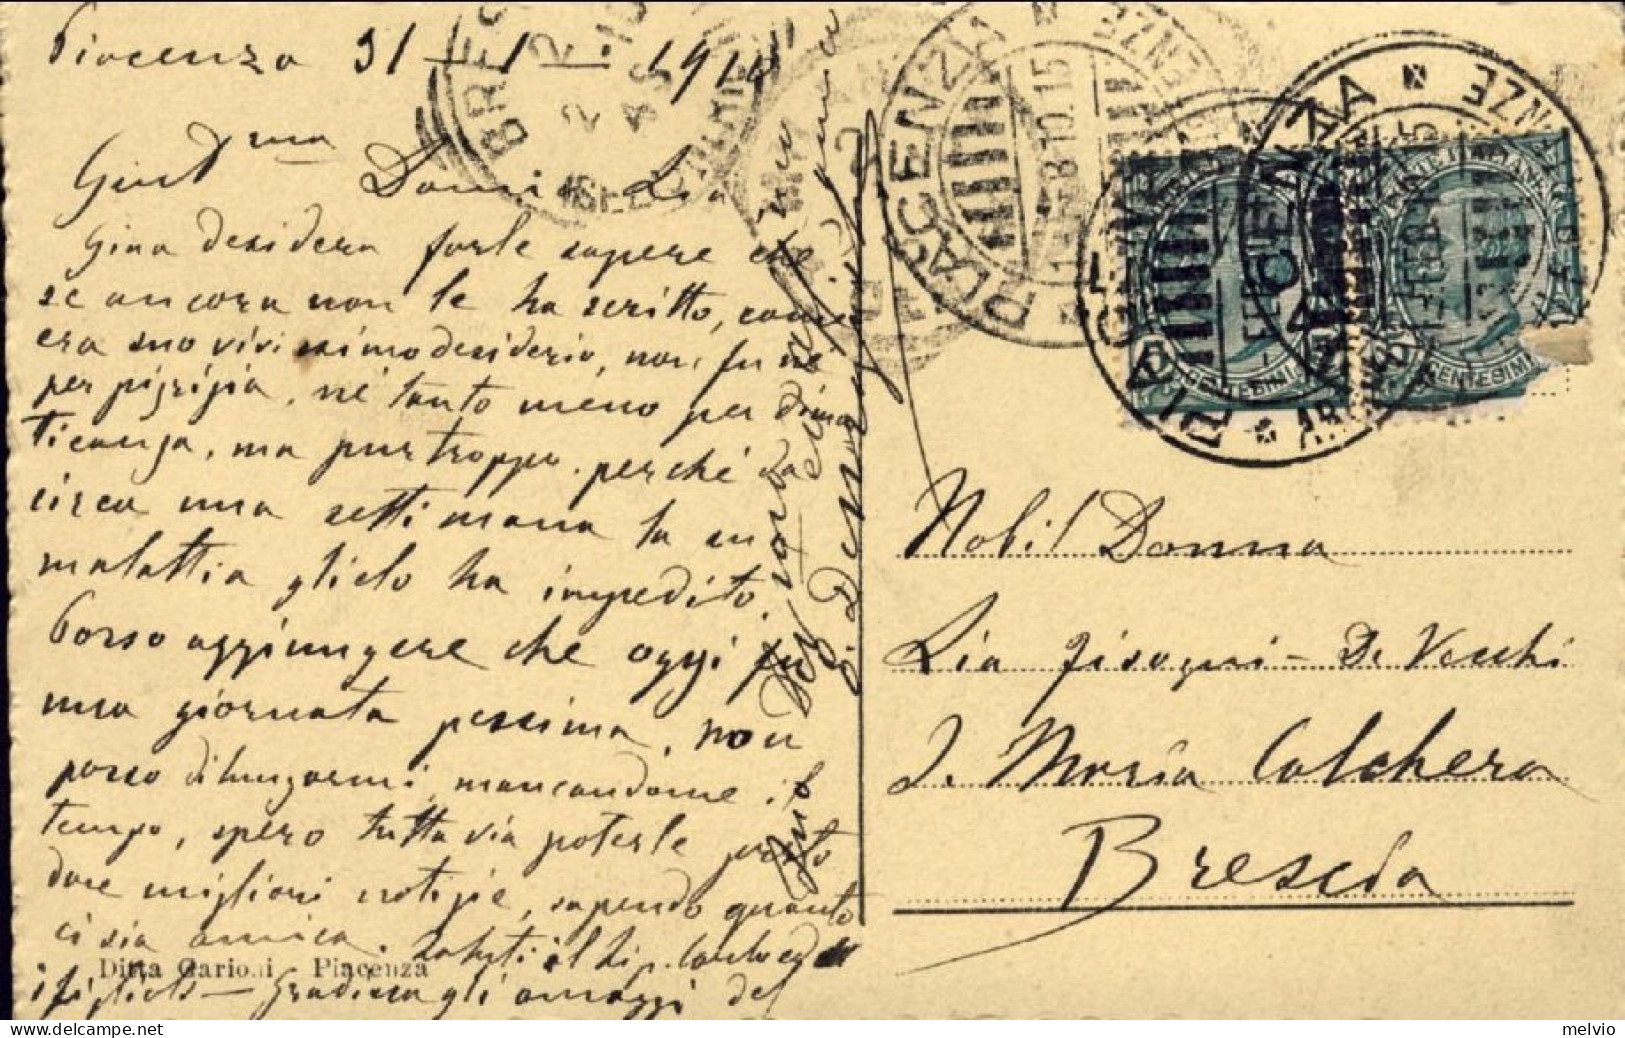 Piacenza 31-1-1910
Gent.ma Donna Lia
Gina desidera farle sapere che
se ancora non le ha scritto, com'
era suo vivissimo desiderio, non fu né
per pigrizia, né tanto meno per dimen
ticanza, ma pur troppo perché da
circa una settimana la su
malattia glielo ha impedito.
Posso aggiungere che oggi fu
una giornata pessima, non
posso dilungarmi, mancandome il
tempo, spero tuttavia poterle presto
dare migliori notizie, sapendo quanto
ci sia amica. Saluti
Ditta Garioni - Piacenza
gradisca gli omaggi del
suo
PIACENZA
PIACENZA
BRESCIA
CENTESIMI
CENTESIMI
Nobil Donna
Lia Fisogni - De Vecchi
S. Maria Calchera
Brescia
melvio